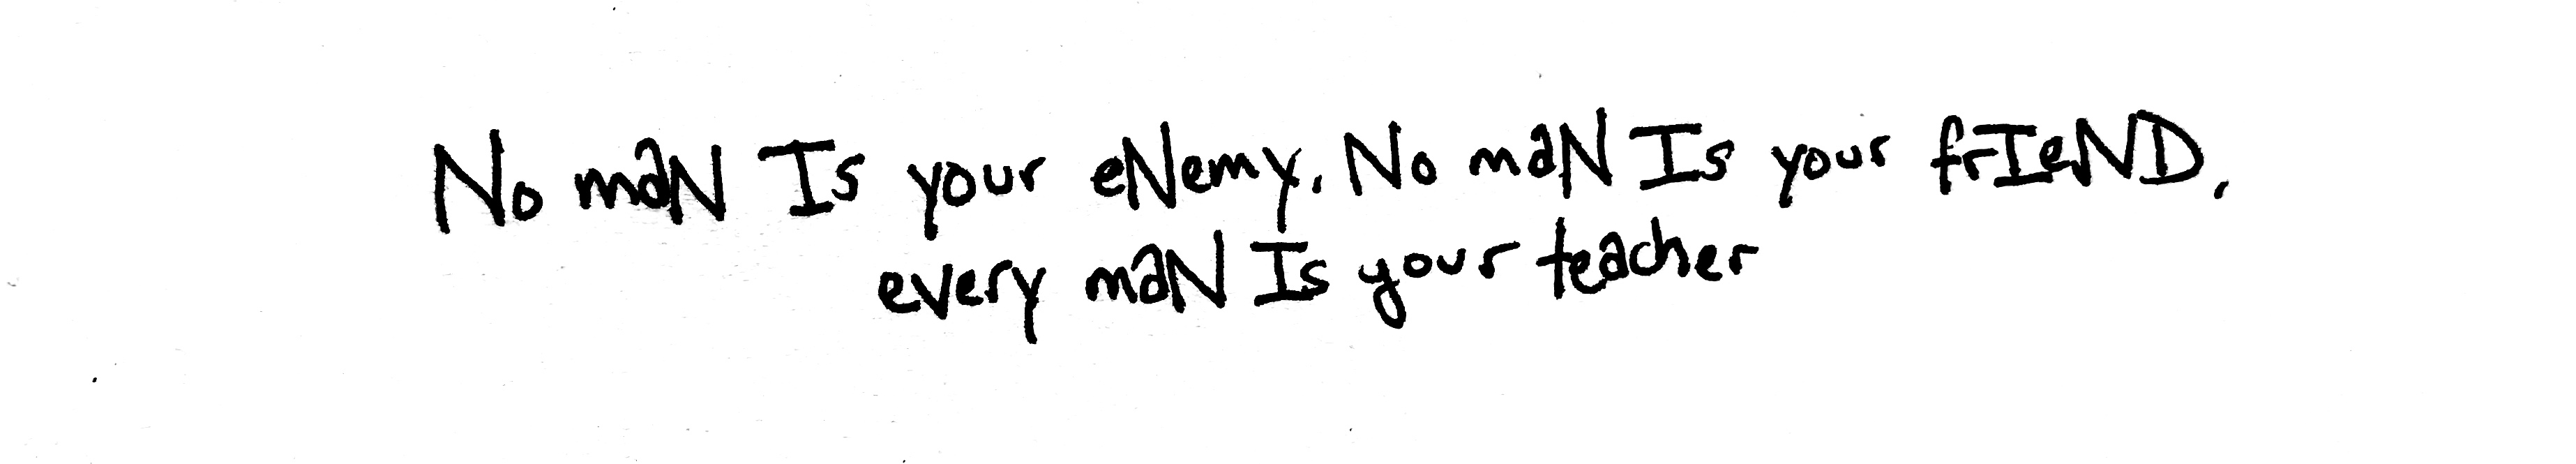 No maN Is your eNemy. No maN Is your frIeND,
every maN Is your teacher